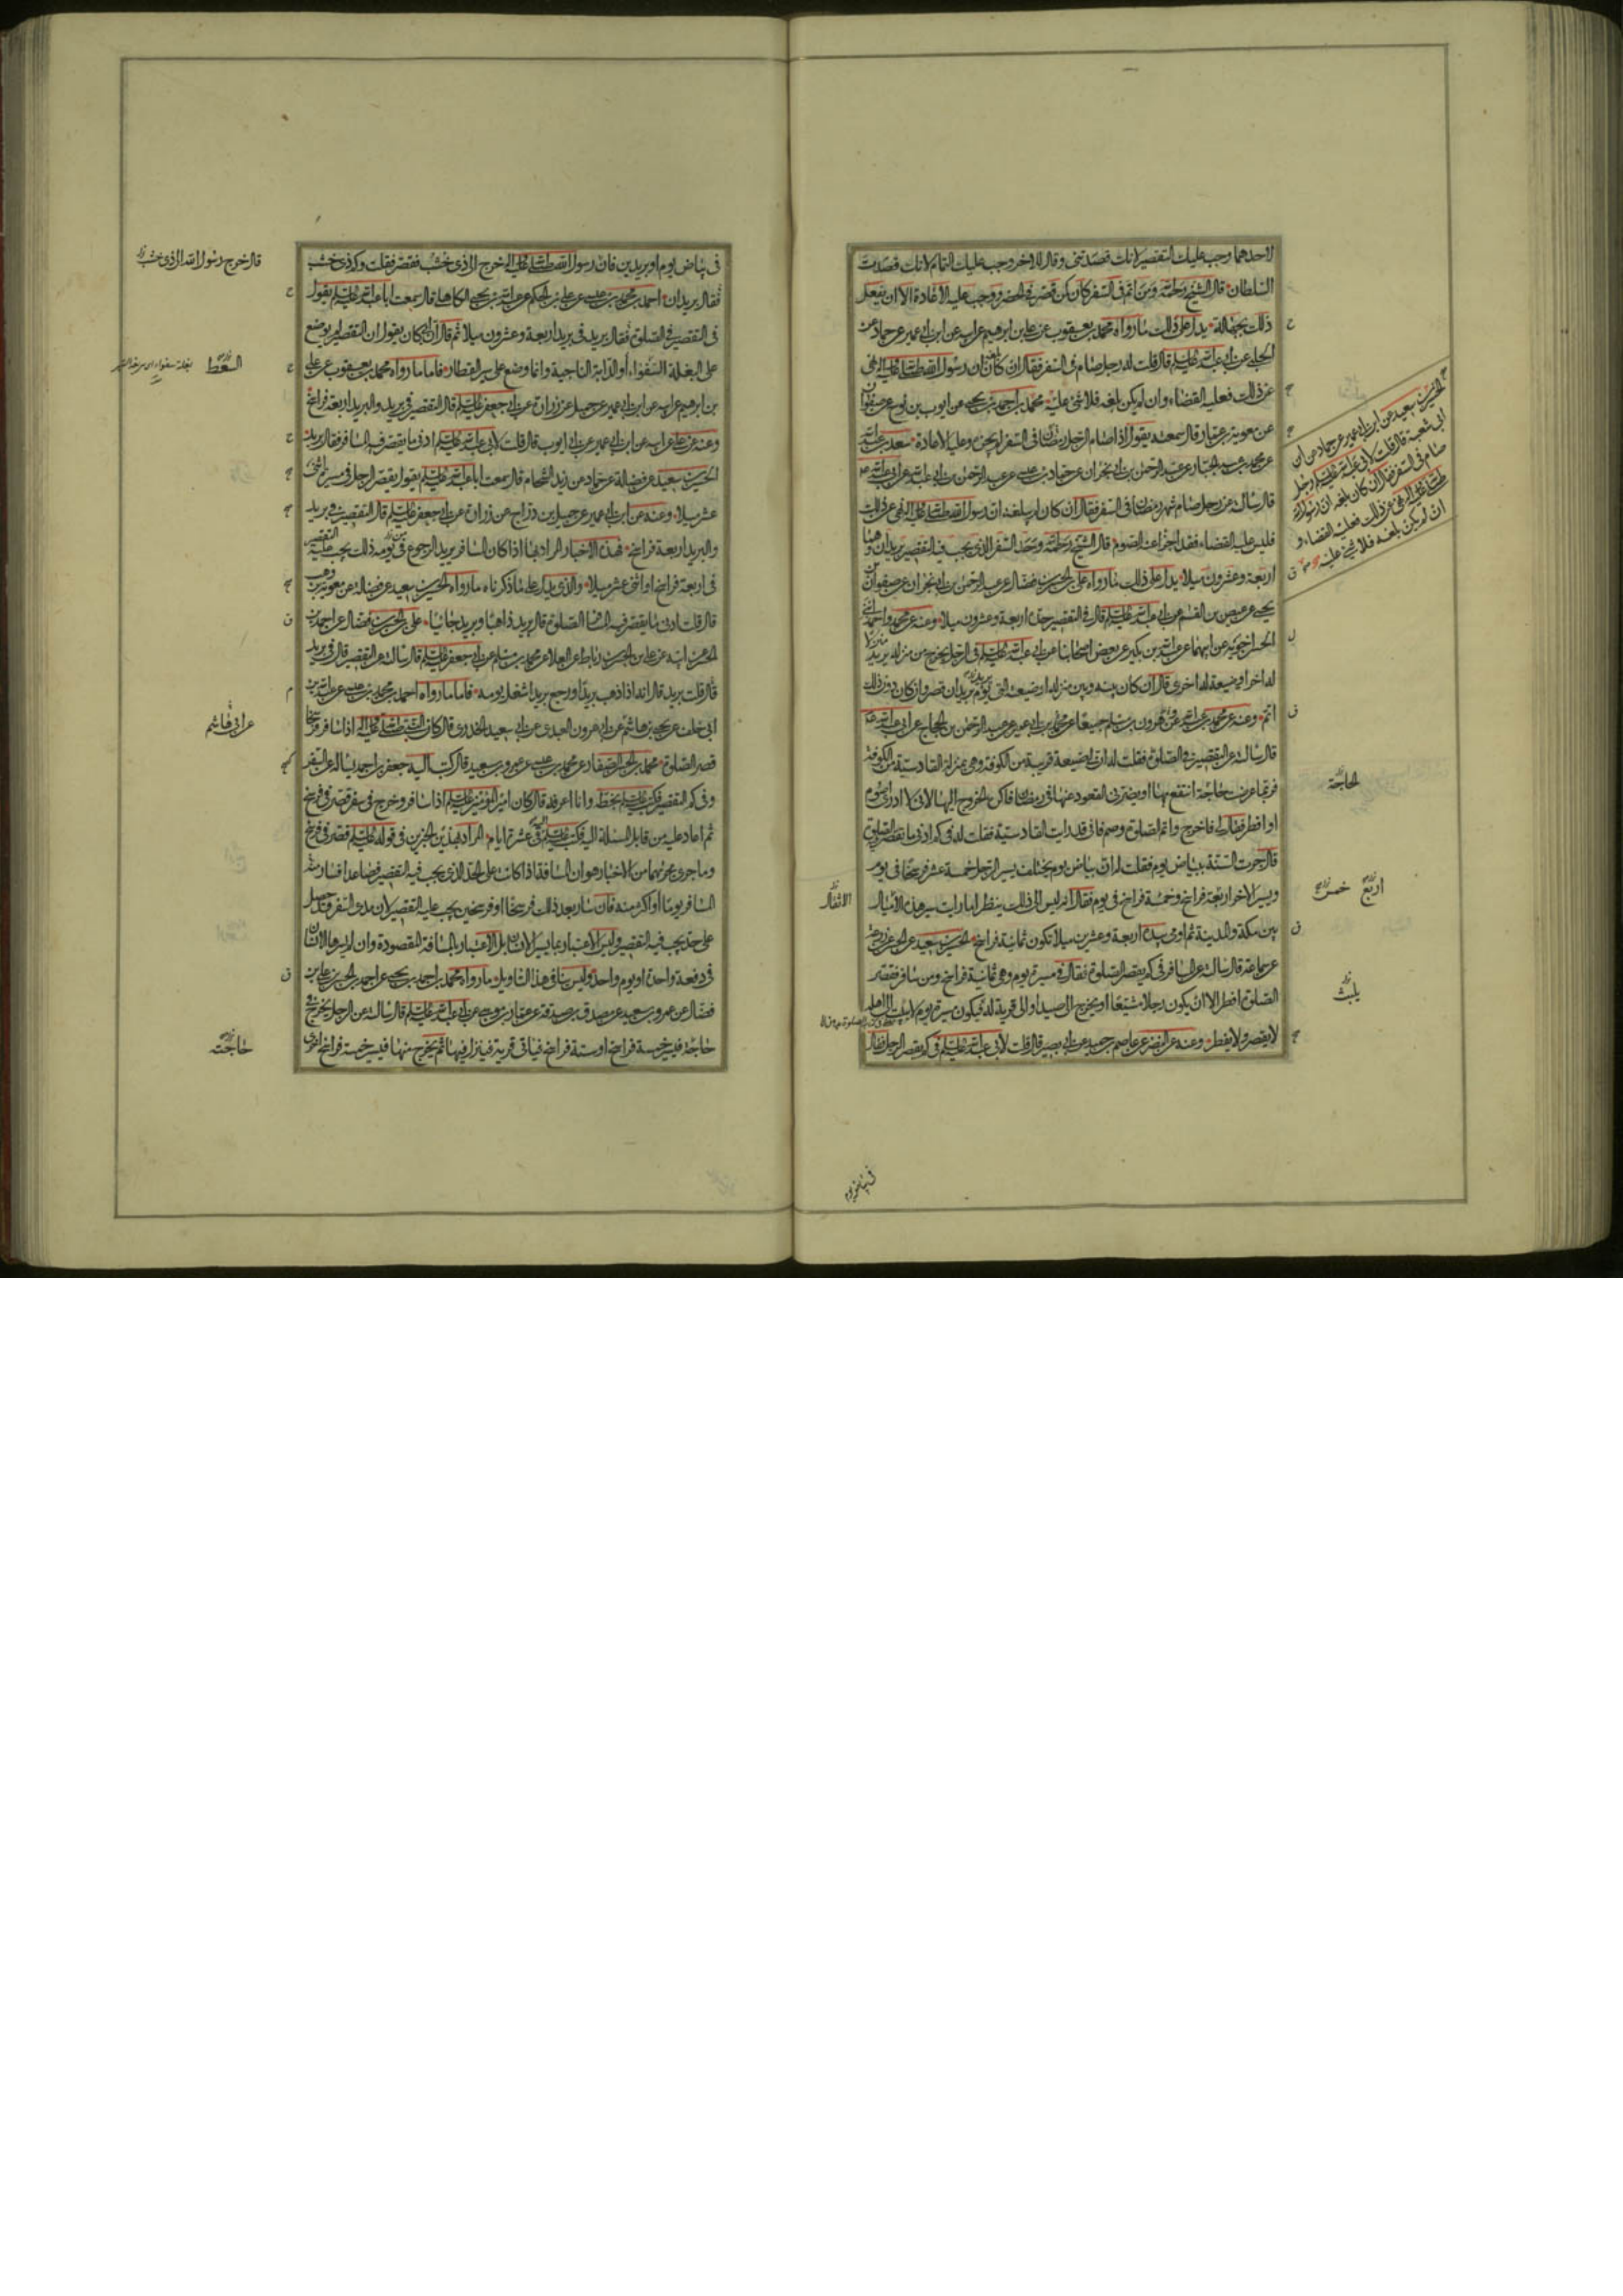 لاحدهما وجب عليك التقصير لانك قصدتني وقال للاخر وجب عليك التمام لانك قصدت
السلطان قال الشيخ رحمه الله ومن اتم في السفر كان كمن قصر في الحضر ووجب عليه الاعادة الا ان يفعل
ذلك بجهالة يدل على ذلك ما رواه محمد بن يعقوب عن علي بن ابرهيم عن ابيه عن ابن ابي عمير عن حماد عن
الحلبي عن ابي عبد الله عليه السلم قال قلت له رجل صام في السفر فقال ان كان بلغه ان رسول الله صلى الله عليه واله نهى
عن ذلك فعليه القضاء وان لم يكن بلغه فلا شئ عليه محمد بن احمد بن يحيى عن ايوب بن نوح عن صفوان
عن معوية بن عمار قال سمعته يقول اذا صام الرجل رمضان في السفر لم يجزه وعليه الاعادة سعد بن عبد الله
عن محمد بن عبد الجبار عن عبد الرحمن بن ابي نجران عن حماد بن عيسى عن عبد الرحمن بن ابي عبد الله عن ابي عبد الله
قال سالته عن رجل صام شهر رمضان في السفر فقال ان كان لم يبلغه ان رسول الله صلى الله عليه واله نهى عن ذلك
فليس عليه القضاء فقد اجزا عنه الصوم قال الشيخ رحمه الله وحد السفر الذي يجب فيه التقصير بريدان وهما
اربعة وعشرون ميلا يدل على ذلك ما رواه علي بن الحسن بن فضال عن عبد الرحمن بن ابي نجران عن صفوان بن
يحيى عن عيص بن القسم عن ابي عبد الله عليه السلم قال في التقصير حده اربعة وعشرون ميلا وعنه عن محمد واحمد ابني
الحسن اخويه عن ابيهما عن عبد الله بن بكير عن بعض اصحابنا عن ابي عبد الله عليه السلم في الرجل يخرج من منزله يريد منزلا
له اخر او ضيعة له اخرى قال ان كان بينه وبين منزله او ضيعته التي يؤم بريدان قصر وان كان دون ذلك
اتم وعنه عن محمد بن عبد الله وهرون بن مسلم جميعا عن محمد بن ابي عمير عن عبد الرحمن بن الحجاج عن ابي عبد الله
قال سالته عن التقصير في الصلوة فقلت له ان لي ضيعة قريبة من الكوفة وهي بمنزلة القادسية من الكوفة
فربما عرضت حاجة انتفع بها او يضرني القعود عنها في رمضان فاكره الخروج اليها لاني لا ادري اصوم
او افطر فقال لي فاخرج واتم الصلوة وصم فاني قد رايت القادسية فقلت له في كم ادنى ما تقصر الصلوة
قال جرت السنة ببياض يوم فقلت له ان بياض يوم يختلف يسير الرجل خمسة عشر فرسخا في يوم
ويسير الاخر اربعة فراسخ وخمسة فراسخ في يوم فقال انه ليس الى ذلك ينظر اما رايت سير هذه الاميال
بين مكة والمدينة ثم اومى بيده اربعة وعشرين ميلا تكون ثمانية فراسخ الحسين بن سعيد عن الحسن عن زرعة
عن سماعة قال سالته عن المسافر في كم يقصر الصلوة فقال في مسيرة يوم وهي ثمانية فراسخ ومن سافر فقصر
الصلوة افطر الا ان يكون رجلا مشيعا او يخرج الى صيد او الى قرية له فيكون مسيرة يوم لا يبيت الى اهله
لا يقصر ولا يفطر وعنه عن النضر عن عاصم بن حميد عن ابي بصير قال قلت لابي عبد الله عليه السلم في كم يقصر الرجل فقال
الحسين بن سعيد عن ابن ابي عمير عن حماد عن ابن
ابي شعبة قال قلت لابي عبد الله عليه السلم رجل
صام في السفر فقال ان كان بلغه ان رسول الله
صلى الله عليه واله نهى عن ذلك فعليه القضاء و
ان لم يكن بلغه فلا شئ عليه
لحاجة
اربع خمس
الاثقال
يلبث
في بياض يوم
في بياض يوم او بريدين فان رسول الله صلى الله عليه واله خرج الى ذي خشب فقصر فقلت وكم ذي خشب
فقال بريدان احمد بن محمد بن عيسى عن علي بن الحكم عن عبد الله بن يحيى الكاهلي قال سمعت ابا عبد الله عليه السلم يقول
في التقصير في الصلوة فقال بريد في بريد اربعة وعشرون ميلا ثم قال ان ابي كان يقول ان التقصير لم يوضع
على البغلة السفواء او الدابة الناجية وانما وضع على سير القطار فاما ما رواه محمد بن يعقوب عن علي
بن ابرهيم عن ابيه عن ابن ابي عمير عن جميل عن زرارة عن ابي جعفر عليه السلم قال التقصير في بريد والبريد اربعة فراسخ
وعنه عن علي عن ابيه عن ابن ابي عمير عن ابي ايوب قال قلت لابي عبد الله عليه السلم ادنى ما يقصر فيه المسافر فقال بريد
الحسين بن سعيد عن فضالة عن حماد عن زيد الشحام قال سمعت ابا عبد الله عليه السلم يقول يقصر الرجل في مسير اثنى
عشر ميلا وعنه عن ابن ابي عمير عن جميل بن دراج عن زرارة عن ابي جعفر عليه السلم قال التقصير في بريد
والبريد اربعة فراسخ فهذه الاخبار المراد بها اذا كان المسافر يريد الرجوع من يومه ذلك يجب عليه التقصير
في اربعة فراسخ او اثنى عشر ميلا والذي يدل على ما ذكرناه ما رواه الحسين بن سعيد عن فضالة عن معوية بن وهب
قال قلت ادنى ما يقصر فيه المسافر الصلوة قال بريد ذاهبا وبريد جائيا علي بن الحسن بن فضال عن احمد بن
الحسن عن ابيه عن علي بن الحسن بن رباط عن العلاء عن محمد بن مسلم عن ابي جعفر عليه السلم قال سالته عن التقصير قال في بريد
قال قلت بريد قال انه اذا ذهب بريدا ورجع بريدا شغل يومه فاما ما رواه احمد بن محمد بن عيسى عن عبد الله بن
ابي خلف عن يحيى بن هاشم عن ابي هرون العبدي عن ابي سعيد الخدري قال كان النبي صلى الله عليه واله اذا سافر فرسخا
قصر الصلوة محمد بن الحسن الصفار عن محمد بن عيسى عن عمرو بن سعيد قال كتب اليه جعفر بن احمد يساله عن السفر
وفي كم التقصير فكتب عليه السلم بخطه وانا اعرفه قال كان امير المؤمنين عليه السلم اذا سافر وخرج في سفر قصر في فرسخ
ثم اعاد عليه من قابل المسئلة اليه فكتب عليه السلم اليه في عشرة ايام المراد بهذين الخبرين في قوله عليه السلم قصر في فرسخ
وما جرى مجراهما من الاخبار هو ان المسافة اذا كانت على الحد الذي يجب فيه التقصير فصاعدا فسار منه
المسافر يوما او اكثر منه فان سار بعد ذلك فرسخا او فرسخين يجب عليه التقصير لان مدى السفر قد حصل
على حد يجب فيه التقصير وليس الاعتبار بما يسير الانسان بل الاعتبار بالمسافة المقصودة وان لم يسرها الانسان
في دفعة واحدة او يوم واحد وليس ينافي هذا التاويل ما رواه محمد بن احمد بن يحيى عن احمد بن الحسن بن علي بن
فضال عن عمرو بن سعيد عن مصدق بن صدقة عن عمار بن موسى عن ابي عبد الله عليه السلم قال سالته عن الرجل يخرج في
حاجة فيسير خمسة فراسخ او ستة فراسخ فياتي قرية فينزل فيها ثم يخرج منها فيسير خمسة فراسخ اخرى
قال خرج رسول الله الى ذي خشب
عن ابي هاشم
حاجته